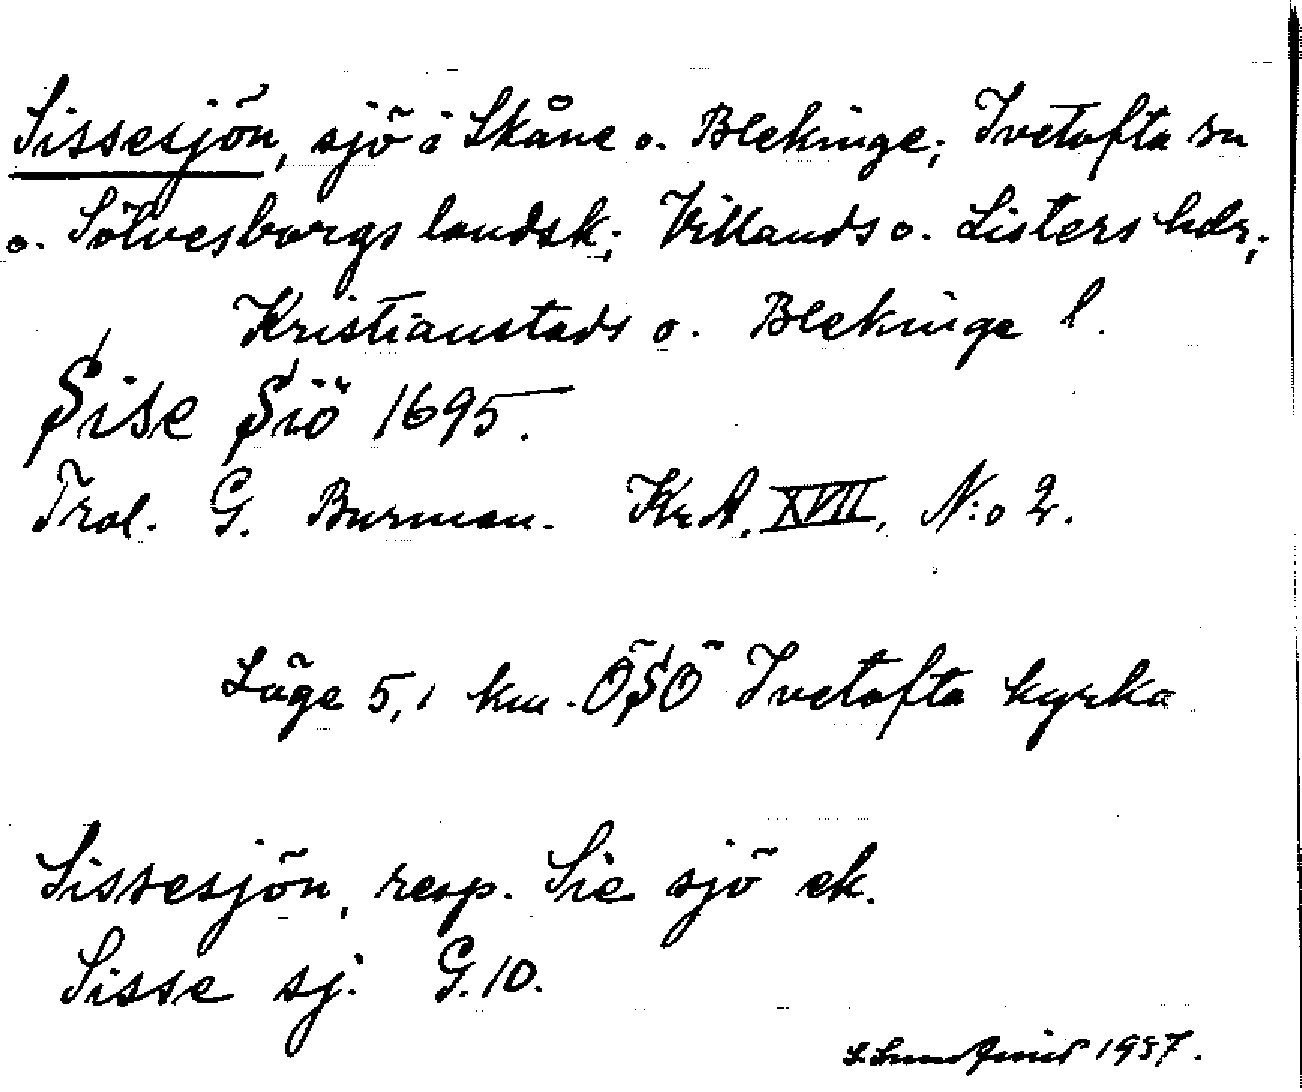 Sissesjön, sjö i Skåne o. Blekinge; Ivetofta sn
o. Sölvesborgs landsk; Villands o. Listers hdr;
Kristianstads o. Blekinge l.
Sise Siö 1695.
Trol. G. Burman. Kr.A. XVII, N:o 2.
Läge 5,1 km. ÖSÖ Ivetofta kyrka
Sissesjön, resp. Sie sjö ek.
Sisse sj. G.10.
1937.